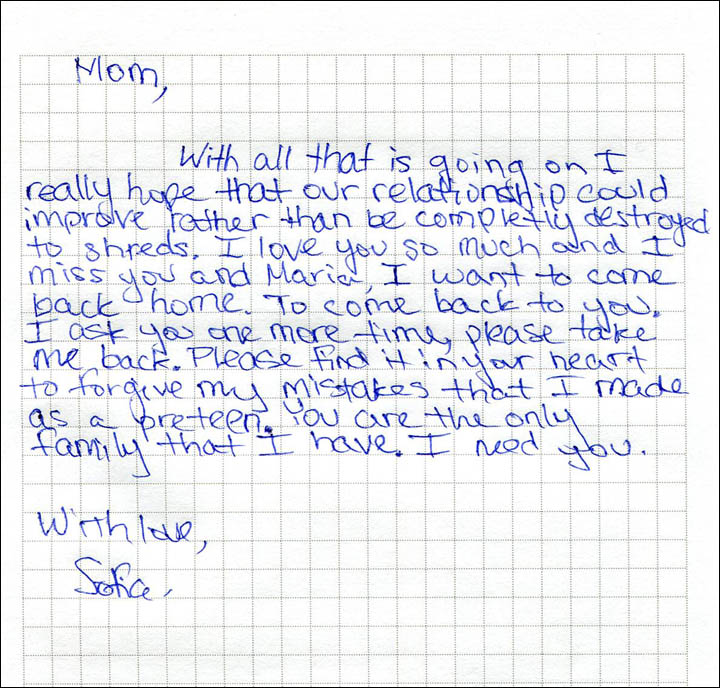 Mom,
With all that is going on I
really hope that our relationship could
improve rather than be completly destroyed
to shreds. I love you so much and I
miss you and Maria, I want to come
back home. To come back to you.
I ask you one more time, please take
me back. Please find it in your heart
to forgive my mistakes that I made
as a preteen. You are the only
family that I have. I need you.
With love,
Sofia.